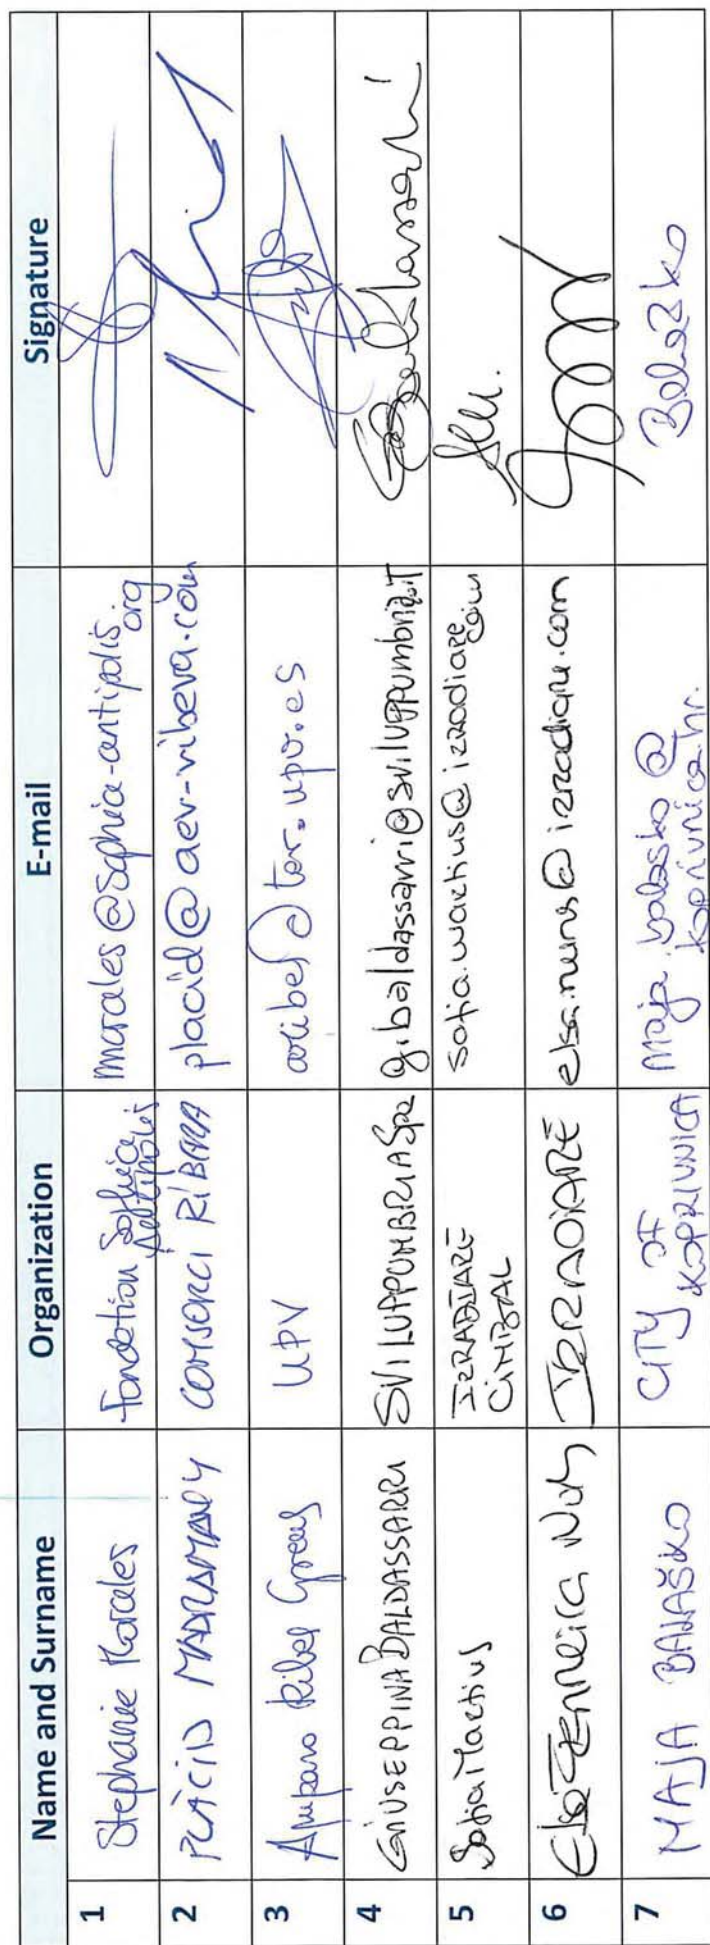 Name and Surname Organization E-mail Signature
1 Stephanie Morales Fondation Sophia Antipolis morales@sophia-antipolis.org
2 PLÀCID MADRAMANY CONSORCI RIBERA placid@aev-ribera.com
3 Amparo Ribes Greus UPV aribes@ter.upv.es
4 GIUSEPPINA BALDASSARRI SVILUPPUMBRIA Spa g.baldassarri@sviluppumbria.it
5 Sofia Martins IZRADIARE CIMBAL sofia.martins@izradiare.com
6 Elsa Ferreira Nunes IZRADIARE elsa.nunes@izradiare.com
7 MAJA BALAŠKO CITY OF KOPRIVNICA maja.balasko@koprivnica.hr. Balaško